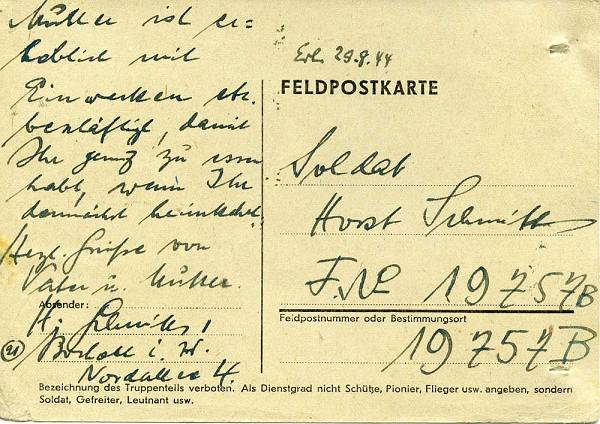 Mutter ist er-
heblich mit
Einwecken etc.
beschäftigt, damit
Ihr genug zu essen
habt, wenn Ihr
demnächst heimkehrt.
Herzl. Grüße von
Vater u. Mutter.
Absender:
H. Schmitt
(21) Bocholt i. W.
Nordallee 4.
Erh. 29.9.44
FELDPOSTKARTE
Soldat
Horst Schmitt
F. No 19757B
Feldpostnummer oder Bestimmungsort
19757B
Bezeichnung des Truppenteils verboten. Als Dienstgrad nicht Schütze, Pionier, Flieger usw. angeben, sondern
Soldat, Gefreiter, Leutnant usw.